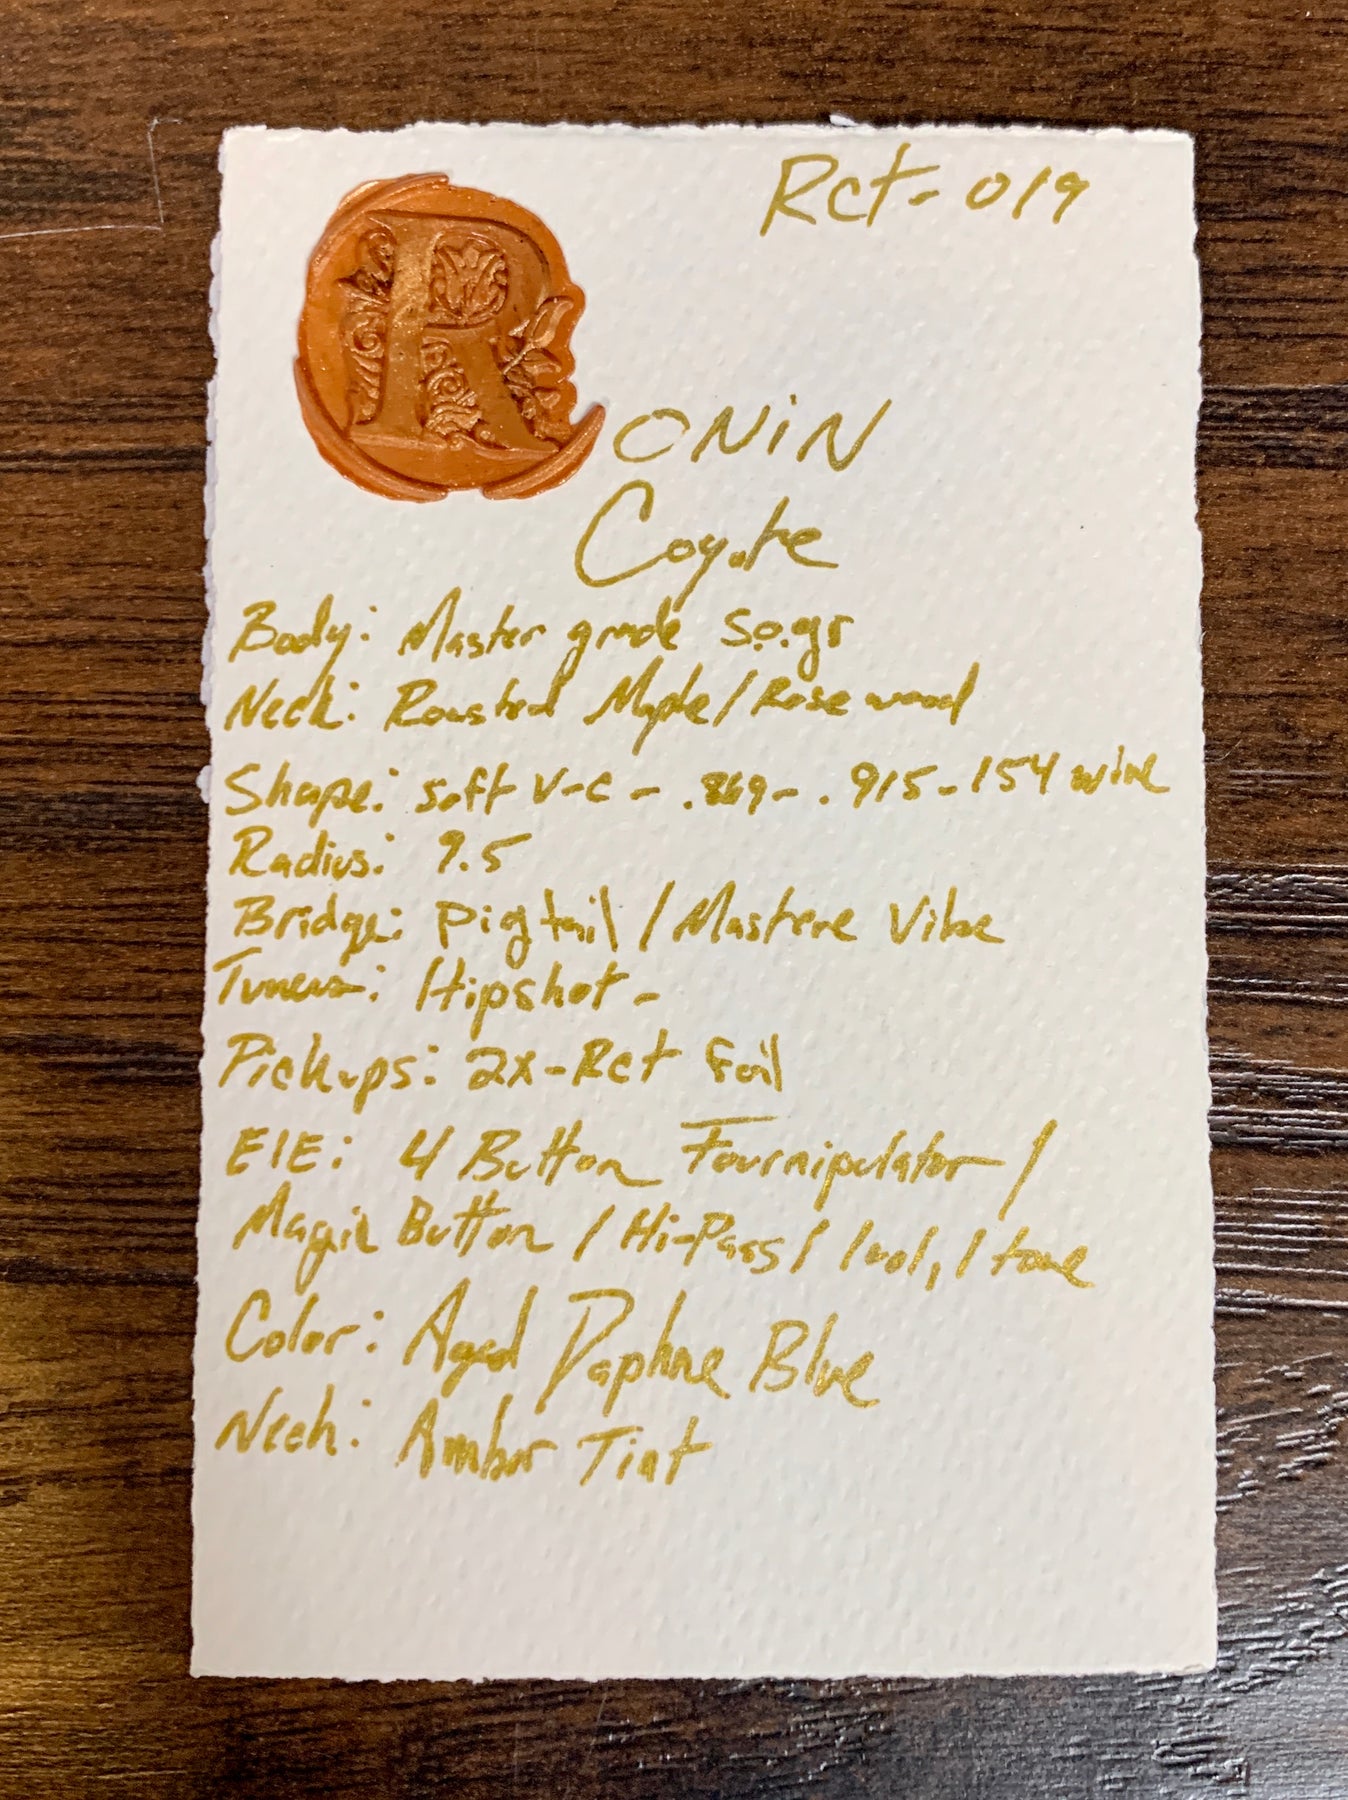 Rct-019
RONIN
Coyote
Body: Master grade S.o.gr
Neck: Roasted Maple/Rosewood
Shape: soft V-C - .869 - .915 - 154 wire
Radius: 9.5
Bridge: pigtail / Mastere Vibe
Tuners: Hipshot -
Pickups: 2x-Rct Foil
ElE: 4 Button Fournipulator /
Magic Button / Hi-Pass / 1vol, 1 tone
Color: Aged Daphne Blue
Neck: Amber Tint